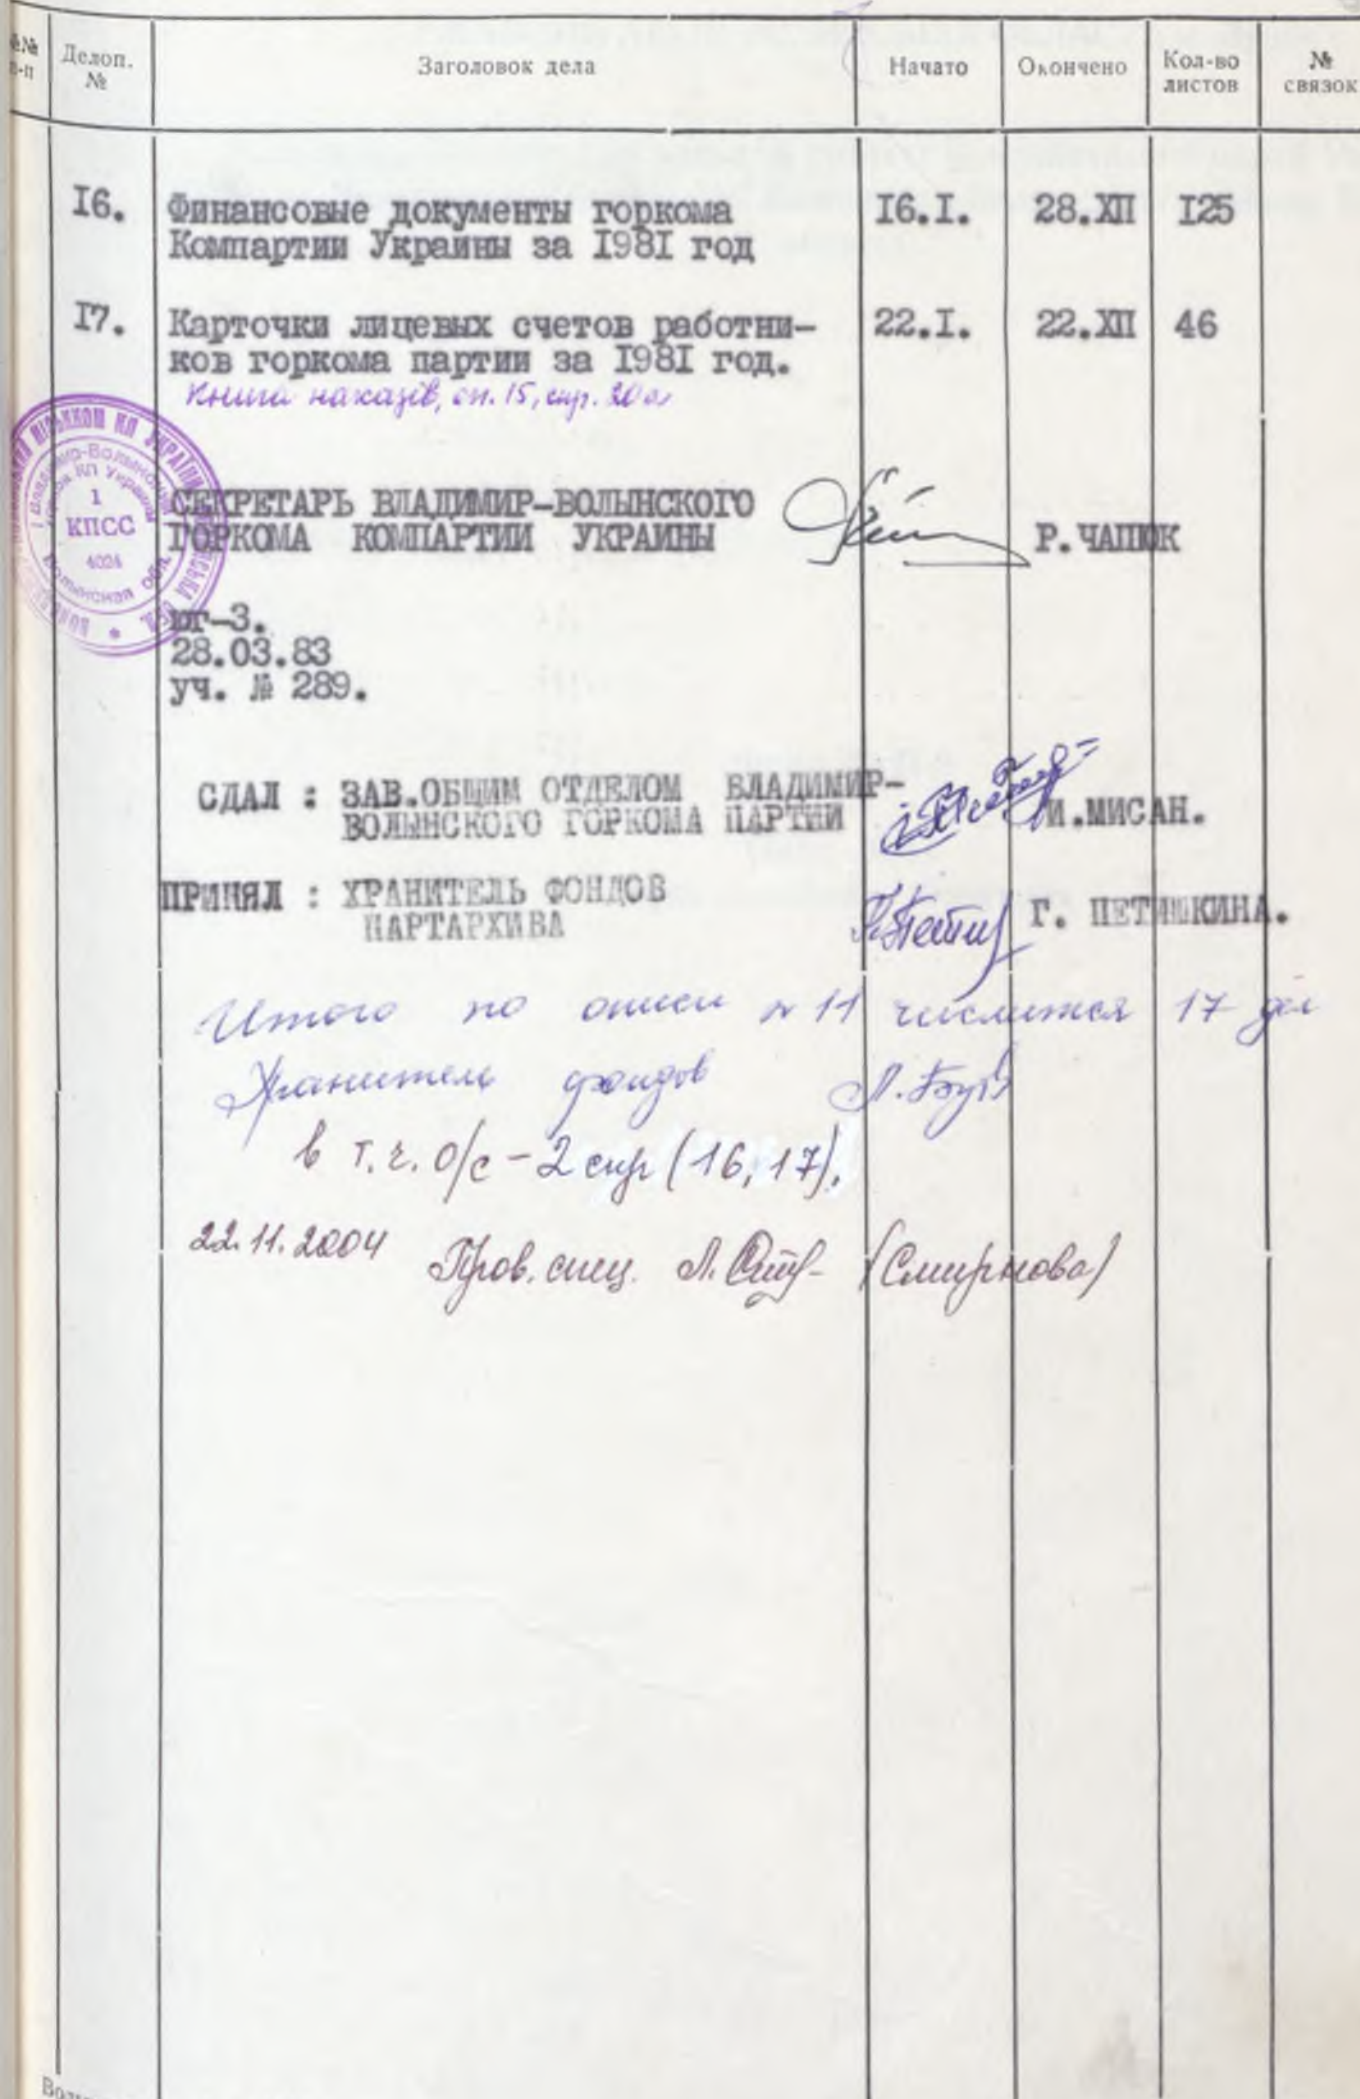 №№ п-п Делоп. № Заголовок дела Начато Окончено Кол-во листов № связок
16. Финансовые документы горкома 16.I. 28.XII 125
Компартии Украины за 1981 год
17. Карточки лицевых счетов работни- 22.I. 22.XII 46
ков горкома партии за 1981 год.
Книга наказів, оп. 15, спр. 20а
Владимир-Волынский
КП Украины
1
КПСС
4024
Волынская обл.
СЕКРЕТАРЬ ВЛАДИМИР-ВОЛЫНСКОГО
ГОРКОМА КОМПАРТИИ УКРАИНЫ Р. ЧАПЮК
юг-3.
28.03.83
уч. № 289.
СДАЛ : ЗАВ.ОБЩИМ ОТДЕЛОМ ВЛАДИМИР-
ВОЛЫНСКОГО ГОРКОМА ПАРТИИ И.МИСАН.
ПРИНЯЛ : ХРАНИТЕЛЬ ФОНДОВ
ПАРТАРХИВА Г. ПЕТИШКИНА.
Итого по описи № 11 числится 17 дел
Хранитель фондов
в т.ч. о/с - 2 спр (16, 17).
22.11.2004 Пров. спец. Л. (Смирнова)